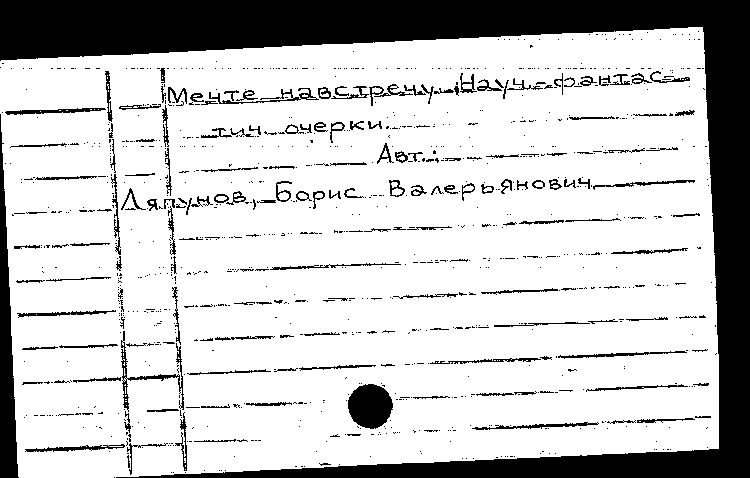 Мечте навстречу. Науч.-фантас-
тич. очерки.
Авт.:
Ляпунов, Борис Валерьянович